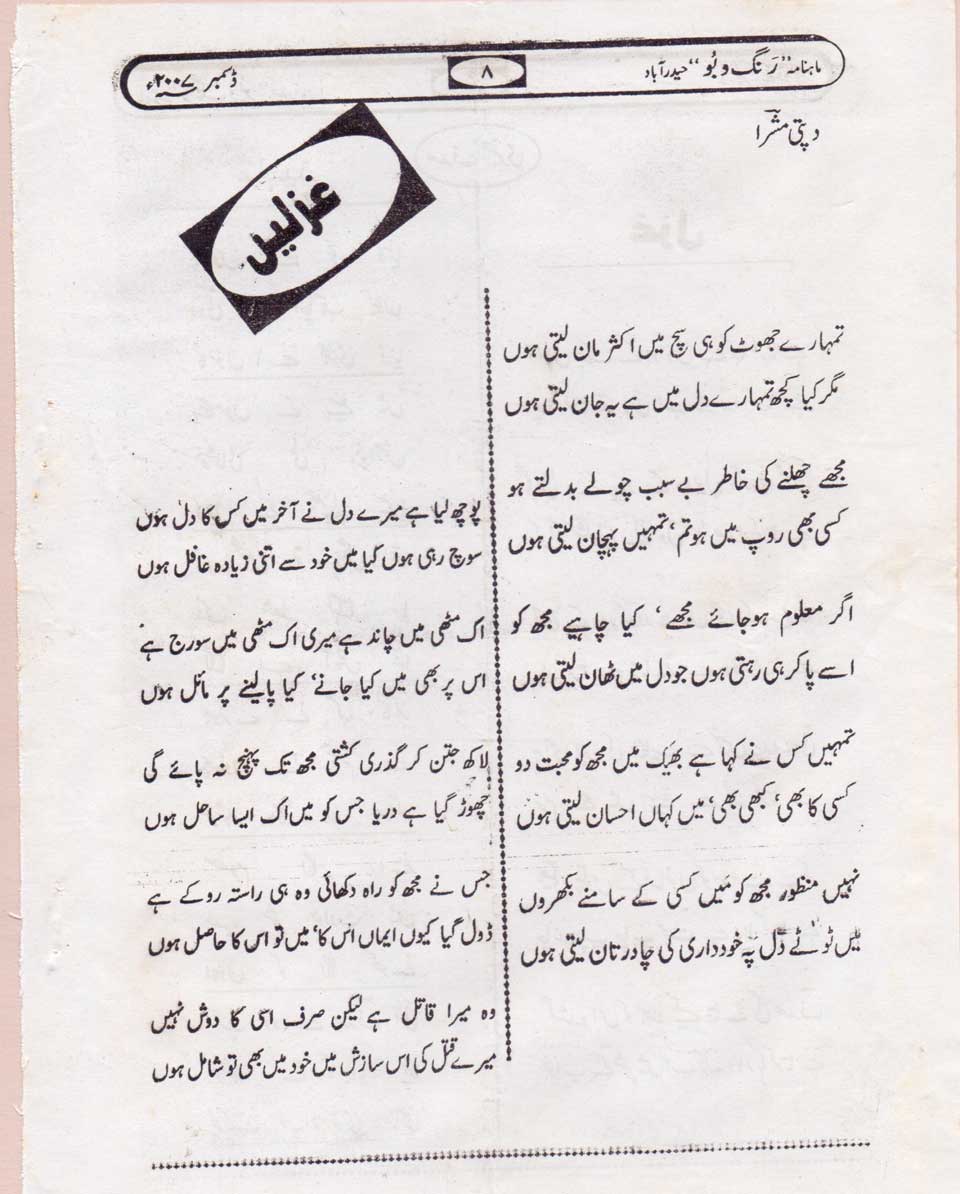 ماہنامہ "رنگ و بو" حیدرآباد
۸
ڈسمبر ۲۰۰۷ء
دپتی مشرا
غزلیں
تمہارے جھوٹ کو ہی سچ میں اکثر مان لیتی ہوں
مگر کیا کچھ تمہارے دل میں ہے یہ جان لیتی ہوں
مجھے چھلنے کی خاطر بے سبب چولے بدلتے ہو
کسی بھی روپ میں ہو تم، تمہیں پہچان لیتی ہوں
اگر معلوم ہو جائے مجھے، کیا چاہیے مجھ کو
اسے پا کر ہی رہتی ہوں جو دل میں ٹھان لیتی ہوں
تمہیں کس نے کہا ہے بھیک میں مجھ کو محبت دو
کسی کا بھی، کبھی بھی، میں کہاں احسان لیتی ہوں
نہیں منظور مجھ کو میں کسی کے سامنے بکھروں
میں ٹوٹے دل پہ خودداری کی چادر تان لیتی ہوں
پوچھ لیا ہے میرے دل نے آخر میں کس کا دل ہوں
سوچ رہی ہوں کیا میں خود سے اتنی زیادہ غافل ہوں
اک مٹھی میں چاند ہے میری اک مٹھی میں سورج ہے
اس پر بھی میں کیا جانے، کیا پا لینے پر مائل ہوں
لاکھ جتن کر گذری کشتی مجھ تک پہنچ نہ پائے گی
چھوڑ گیا ہے دریا جس کو میں اک ایسا ساحل ہوں
جس نے مجھ کو راہ دکھائی وہ ہی راستہ روکے ہے
ڈول گیا کیوں ایماں اس کا، میں تو اس کا حاصل ہوں
وہ میرا قاتل ہے لیکن صرف اسی کا دوش نہیں
میرے قتل کی اس سازش میں خود میں بھی تو شامل ہوں